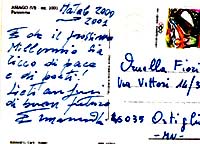 ASIAGO
Panorama
Natale 2000
2001
E che il prossimo
Millennio sia
ricco di pace
e di
Lieti auguri
di buon futuro
Emanuela
Ornella Fiori
Via Vittori 14/3
46035 Ostiglia
-MN-